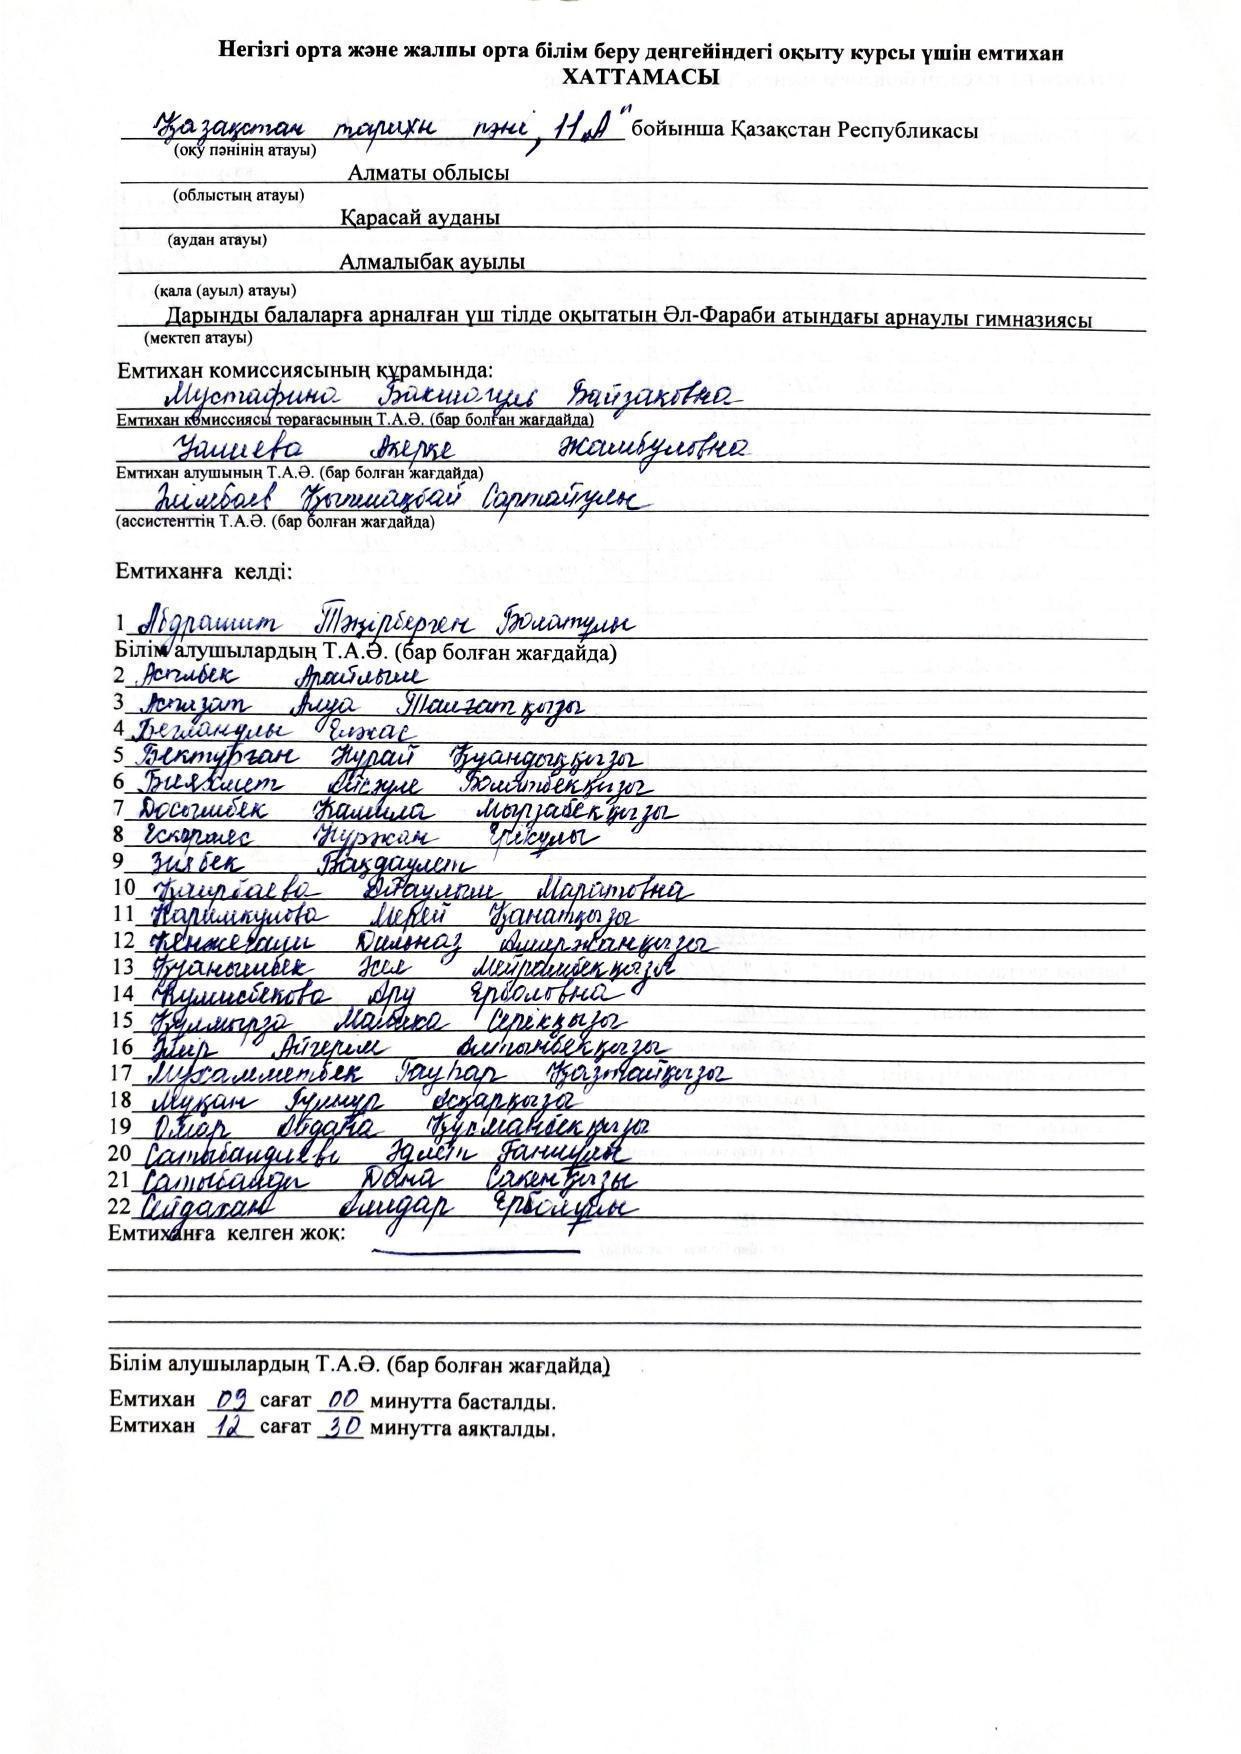 Негізгі орта және жалпы орта білім беру деңгейіндегі оқыту курсы үшін емтихан
ХАТТАМАСЫ
Қазақстан тарихи пәні, 11 „А" бойынша Қазақстан Республикасы
(оқу пәнінің атауы)
Алматы облысы
(облыстың атауы)
Қарасай ауданы
(аудан атауы)
Алмалыбақ ауылы
(қала (ауыл) атауы)
Дарынды балаларға арналған үш тілде оқытатын Әл-Фараби атындағы арнаулы гимназиясы
(мектеп атауы)
Емтихан комиссиясының құрамында:
Мустафина Бакшагуль Байзаковна
Емтихан комиссиясы төрағасының Т.А.Ә. (бар болған жағдайда)
Уалиева Ақерке Жамбуловна
Емтихан алушының Т.А.Ә. (бар болған жағдайда)
Әлімбаев Қыпшақбай Сартайұлы
(ассистенттің Т.А.Ә. (бар болған жағдайда)
Емтиханға келді:
1 Абдрашит Тәңірберген Болатұлы
Білім алушылардың Т.А.Ә. (бар болған жағдайда)
2 Асылбек Арайлым
3 Асылзат Алуа Талғатқызы
4 Бегланұлы Елжас
5 Бектурған Нұрай Қуандыққызы
6 Бияхмет
7 Досымбек Камила Мырзабекқызы
8 Нұржан Ерікұлы
9 Зиябек Бақдаулет
10 Қаирбаева Маратовна
11 Каримкулова Мерей Қанатқызы
12 Кенжеғали Дильназ Амиржанқызы
13 Қуанышбек Мейрамбекқызы
14 Кумисбекова Ару Ерболовна
15 Құлмырза Малика Серікқызы
16 Әмір Айгерім Алтынбекқызы
17 Мухамметбек Гауһар Қазтайқызы
18 Мұқан Гулнұр Асқарқызы
19 Омар Айдана Құсманбекқызы
20 Сатыбалдиев Әділет Ғаниұлы
21 Сатыбалды Дана Сакенқызы
22 Сейдахан Алидар Ерболұлы
Емтиханға келген жоқ:
Білім алушылардың Т.А.Ә. (бар болған жағдайда)
Емтихан 09 сағат 00 минутта басталды.
Емтихан 12 сағат 30 минутта аяқталды.